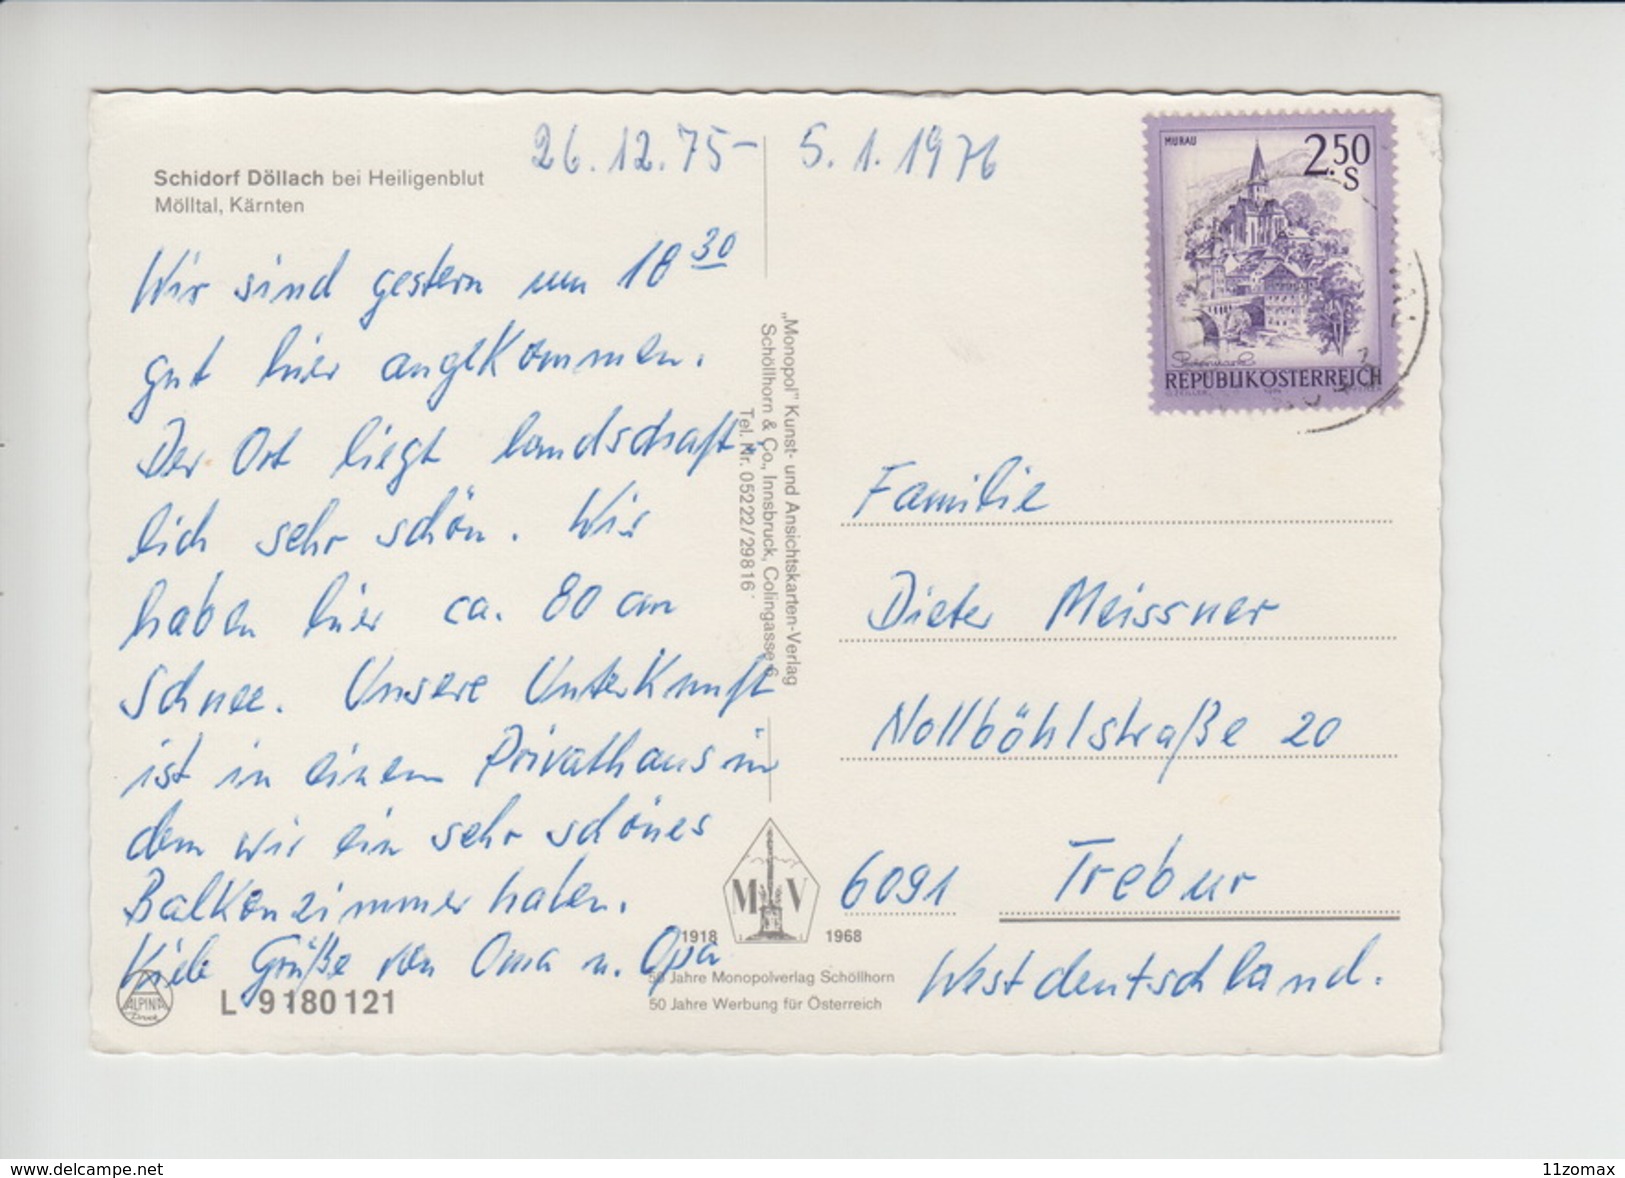 26.12.75– 5.1.1976
Schidorf Döllach bei Heiligenblut
Mölltal, Kärnten
Wir sind gestern um 18 30
gut hier angekommen.
Der Ort liegt landschaft-
lich sehr schön. Wir
haben hier ca. 80 cm
Schnee. Unsere Unterkunft
ist in einem Privathaus in
dem wir ein sehr schönes
Balkonzimmer haben.
Viele Grüße von Oma u. Opa
ALPINA
Druck
L 9 180 121
„Monopol" Kunst- und Ansichtskarten-Verlag
Schöllhorn & Co., Innsbruck, Colingasse 6
Tel. Nr. 05222/29816
M V
1918 1968
50 Jahre Monopolverlag Schöllhorn
50 Jahre Werbung für Österreich
MURAU
2.50
S
REPUBLIK ÖSTERREICH
Familie
Dieter Meissner
Nollböhlstraße 20
6091 Trebur
Westdeutschland.
www.delcampe.net
11zomax